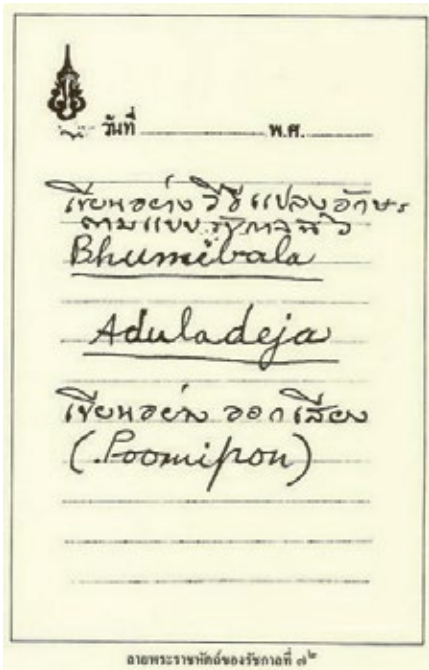 วันที่ พ.ศ.
เขียนอย่าง วิธีแปลงอักษร
ตามแบบ
Bhumibala
Aduladeja
เขียนอย่าง ออกเสียง
(Poomipon)
ลายพระราชหัตถ์ของรัชกาลที่ ๗๒